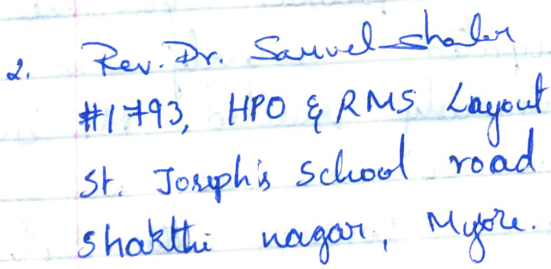 2. Rev. Dr. Samuel
#1793, HPO & RMS Layout
St. Joseph's School road
Shakthi nagar, Mysore.